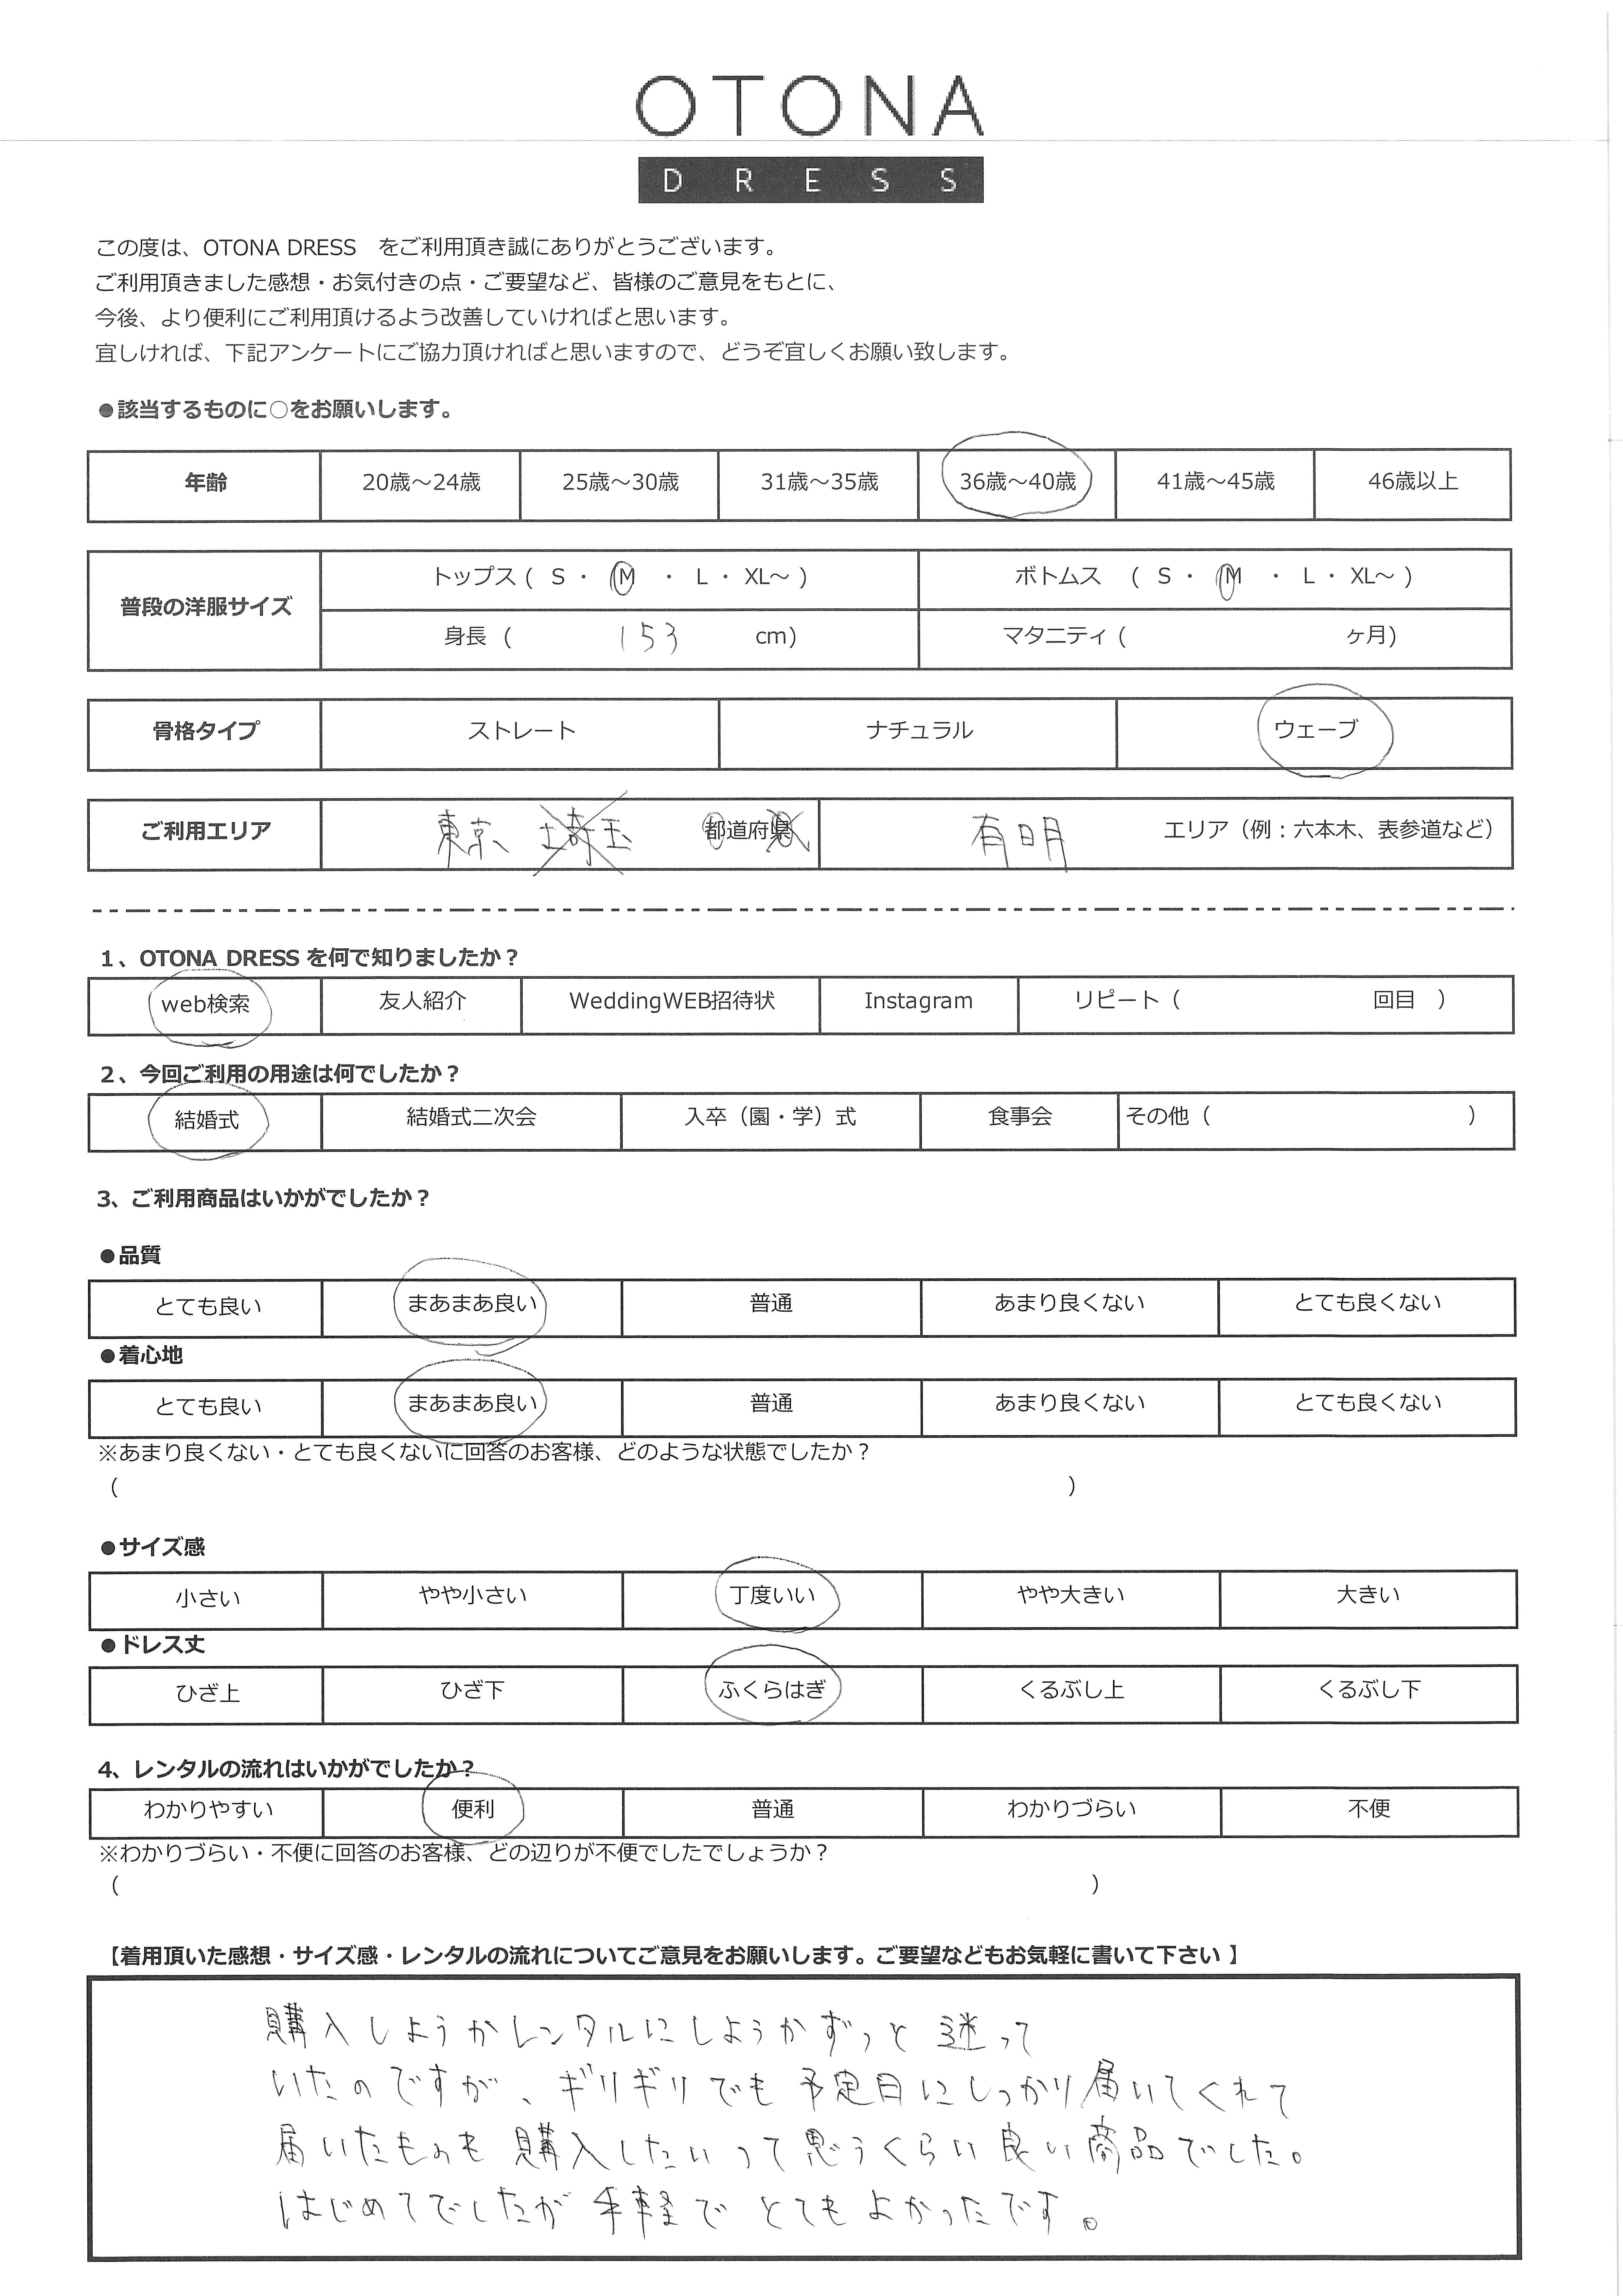 OTONA
DRESS
この度は、OTONA DRESS　をご利用頂き誠にありがとうございます。
ご利用頂きました感想・お気付きの点・ご要望など、皆様のご意見をもとに、
今後、より便利にご利用頂けるよう改善していければと思います。
宜しければ、下記アンケートにご協力頂ければと思いますので、どうぞ宜しくお願い致します。
●該当するものに○をお願いします。
年齢 20歳～24歳 25歳～30歳 31歳～35歳 36歳～40歳 41歳～45歳 46歳以上
普段の洋服サイズ
トップス ( S ・ M ・ L ・ XL～ ) ボトムス ( S ・ M ・ L ・ XL～ )
身長 ( 153 cm) マタニティ ( ヶ月)
骨格タイプ ストレート ナチュラル ウェーブ
ご利用エリア 東京 埼玉 都道府県 有明 エリア（例：六本木、表参道など）
1、OTONA DRESS を何で知りましたか？
web検索 友人紹介 WeddingWEB招待状 Instagram リピート（ 回目 ）
2、今回ご利用の用途は何でしたか？
結婚式 結婚式二次会 入卒（園・学）式 食事会 その他（ ）
3、ご利用商品はいかがでしたか？
●品質
とても良い まあまあ良い 普通 あまり良くない とても良くない
●着心地
とても良い まあまあ良い 普通 あまり良くない とても良くない
※あまり良くない・とても良くないに回答のお客様、どのような状態でしたか？
（ ）
●サイズ感
小さい やや小さい 丁度いい やや大きい 大きい
●ドレス丈
ひざ上 ひざ下 ふくらはぎ くるぶし上 くるぶし下
4、レンタルの流れはいかがでしたか？
わかりやすい 便利 普通 わかりづらい 不便
※わかりづらい・不便に回答のお客様、どの辺りが不便でしたでしょうか？
（ ）
【着用頂いた感想・サイズ感・レンタルの流れについてご意見をお願いします。ご要望などもお気軽に書いて下さい 】
購入しようかレンタルにしようかずっと迷って
いたのですが、ギリギリでも予定日にしっかり届いてくれて
届いたものも購入したいって思うくらい良い商品でした。
はじめてでしたが手軽でとてもよかったです。